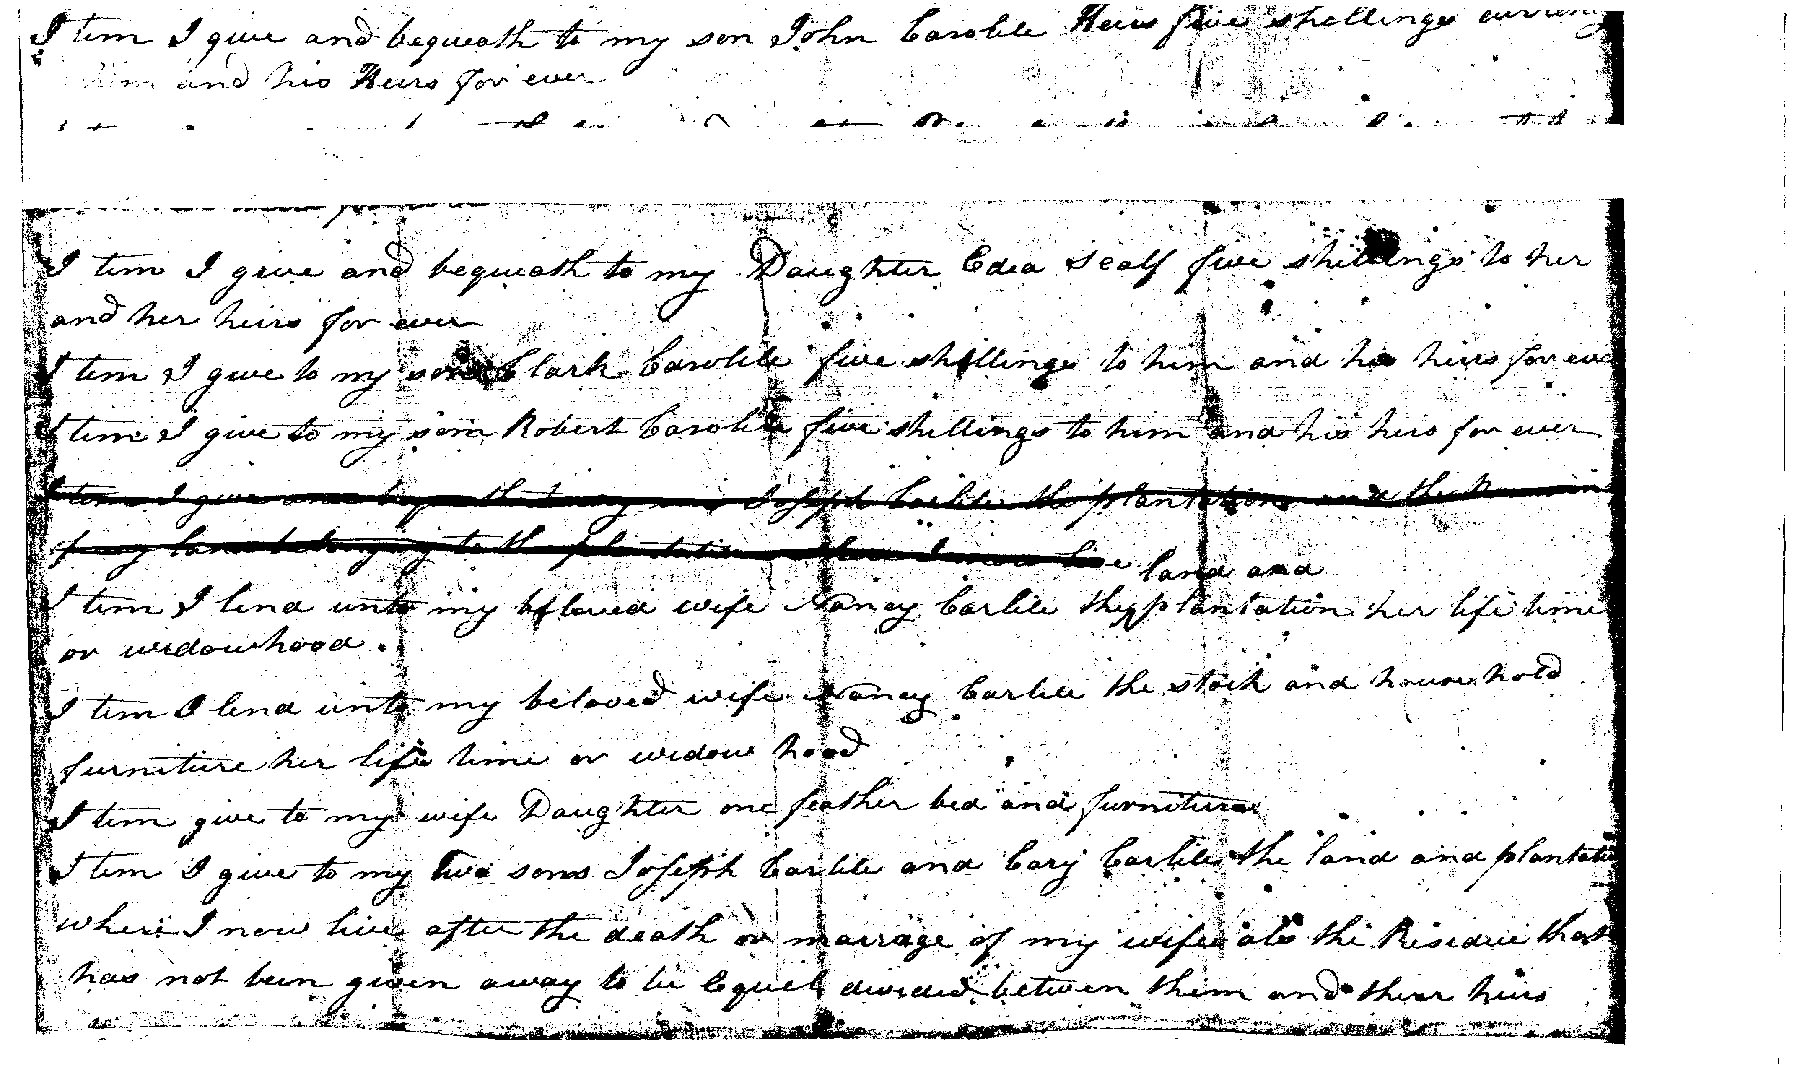 I tim I give and bequeath to my son John Carolile Heirs five shellings curreny
him and his Heirs for ever
I tim I give and bequeath to my Daughter Edea Sealf five shillings to her
and her heirs for ever
I tim I give to my son Clark Carolile five shillings to him and his heirs for ever
I tim I give to my son Robert Carolile five shillings to him and his heirs for ever
I tim I give and bequeath to my son Joseph Carlile the plantations and the
of my land belonging to the plantation where I now live
land and
I tim I lend unto my beloved wife Nancy Carlile the plantation her life time
or widowhood.
I tim I lend unto my beloved wife Nancy Carlile the stock and household
furniture her life time or widow hood
I tim give to my wife Daughter one feather bed and furniture
I tim I give to my Two sons Joseph Carlile and Cary Carlile the land and plantatio
where I now live after the death or marrage of my wife als the Risedue that
has not been given away to be Equel devided between them and their heirs